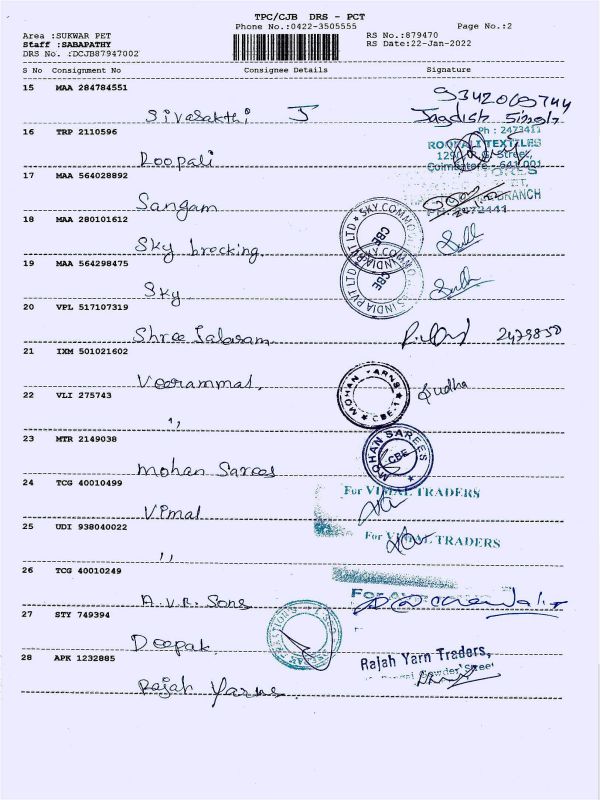 TPC/CJB DRS - PCT
Phone No.:0422-3505555 Page No.:2
Area :SUKWAR PET RS No.:879470
Staff :SABAPATHY RS Date:22-Jan-2022
DRS No. :DCJB87947002
S No Consignment No Consignee Details Signature
15 MAA 284784551
Sivasakthi J Jagdish Singh
16 TRP 2110596 Ph : 2473411
Roopali ROOPALI TEXTILES
Street,
Coimbatore - 641 001
17 MAA 564028892
Sangam BRANCH
18 MAA 280101612
Sky brecking. CBE
19 MAA 564298475
Sky CBE
20 VPL 517107319
Shree Jalaram
21 IXM 501021602
Veerammal, MOHAN YARNS CBE-1 Sudha
22 VLI 275743
"
23 MTR 2149038
Mohan Sarees MOHAN SAREES CBE
24 TCG 40010499
Vimal For VIMAL TRADERS
25 UDI 938040022
" For VIMAL TRADERS
26 TCG 40010249
A.V.R. Sons For
27 STY 749394
Deepak
28 APK 1232885
Rajah Yarns Rajah Yarn Traders,
Street